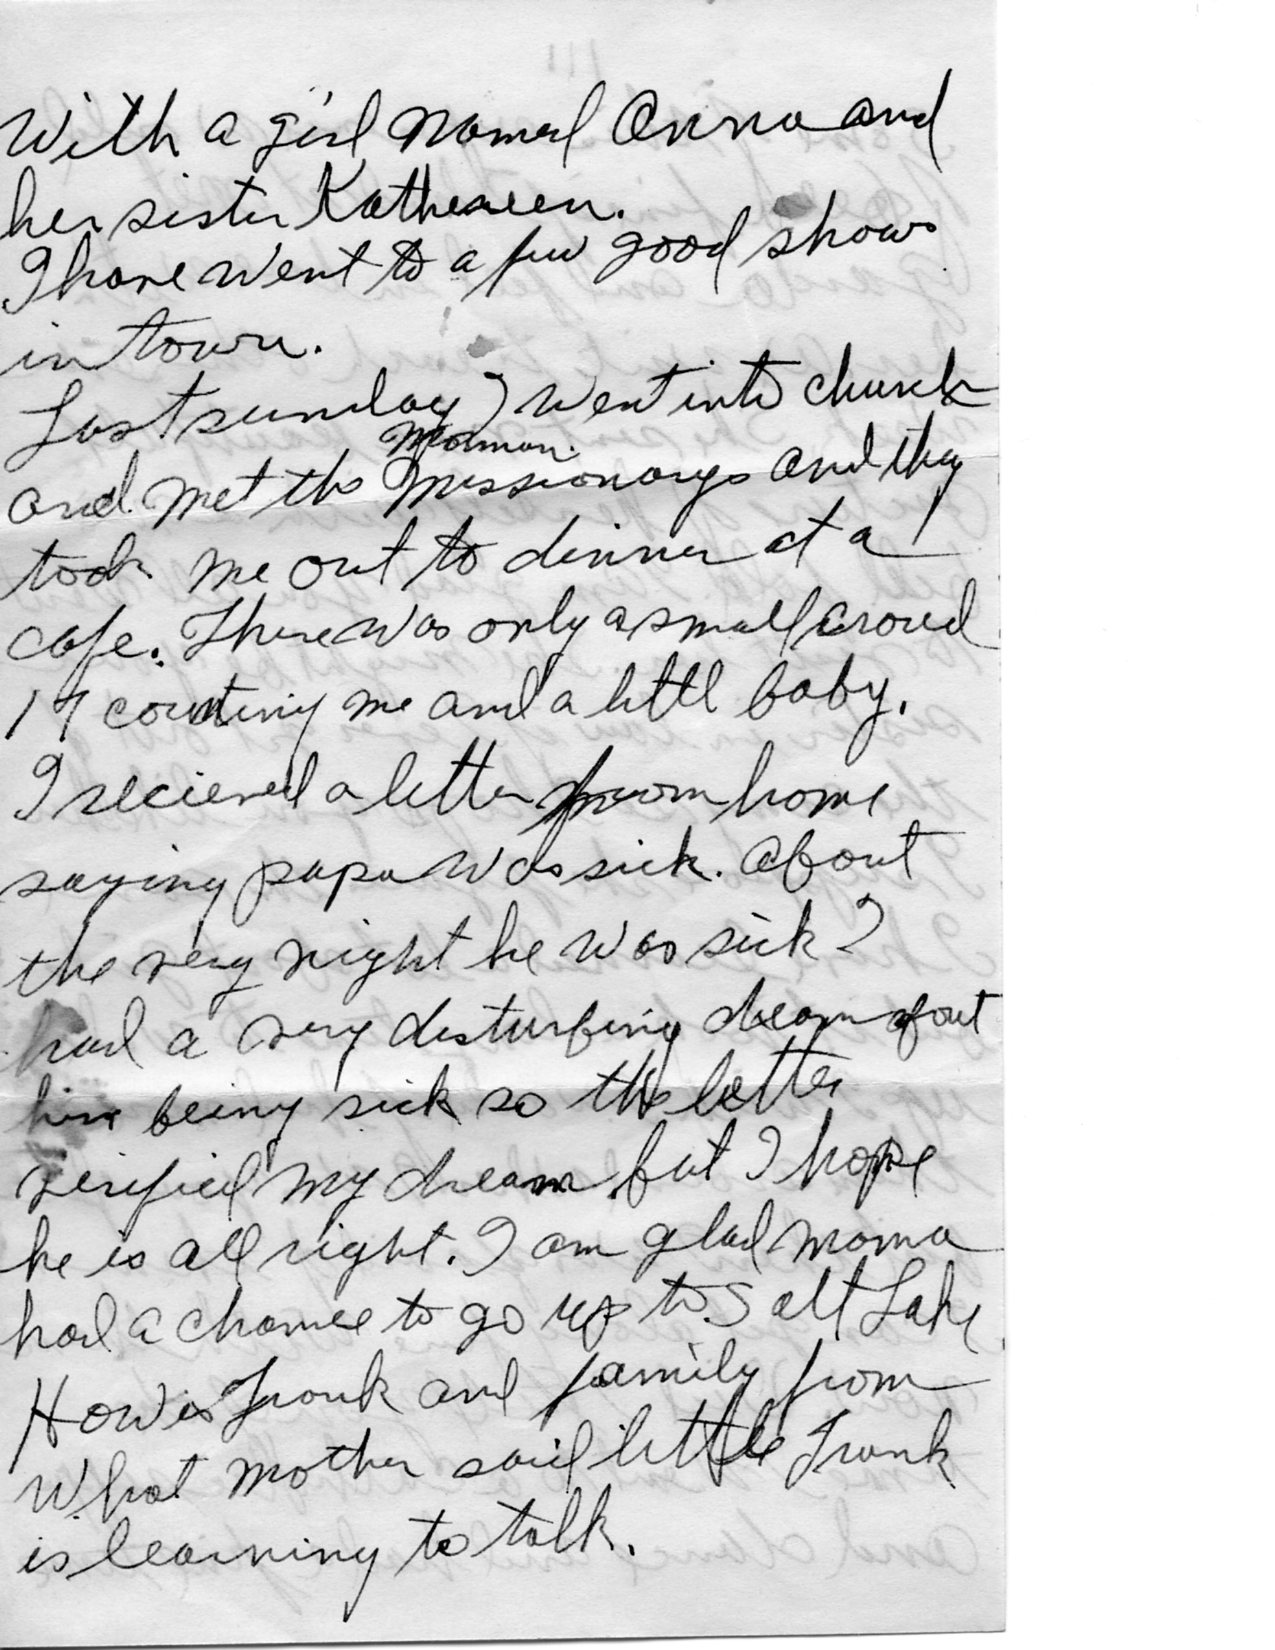 With a girl named Anna and
her sister Kathereen.
I have went to a few good shows
in town.
Last sunday I went into church
Mormon
and met the missionarys and they
took me out to dinner at a
cafe. There was only a small croud
17 counting me and a littl baby.
I recieved a letter from home
saying papa was sick. About
the very night he was sick I
had a very disturbing dream about
him being sick so the letter
verified my dream but I hope
he is all right. I am glad moma
had a chance to go up to Salt Lake
How is Frank and family from
What mother said little Frank
is learning to talk.